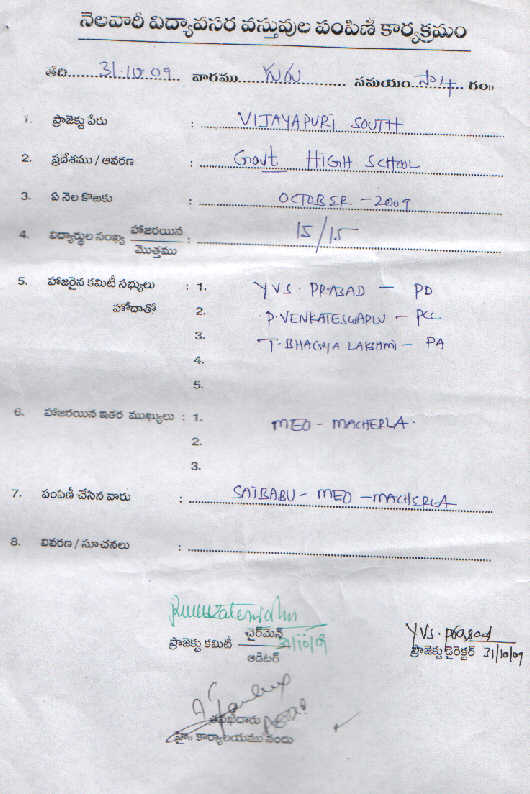 నెలవారీ విద్యావసర వస్తువుల పంపిణీ కార్యక్రమం
తేది 31.10.09 వారము సమయం గం॥
1. ప్రాజెక్టు పేరు : VIJAYAPURI SOUTH
2. ప్రదేశము / ఆవరణ : Govt HIGH SCHOOL
3. ఏ నెల కొఱకు : OCTOBER - 2009
4. విద్యార్థుల సంఖ్య హాజరయిన / మొత్తము : 15/15
5. హాజరైన కమిటీ సభ్యులు : 1. YVS. PRASAD - PD
హోదాతో 2. VENKATESWARLU - PCC
3. T. BHAGYA LAKSHMI - PA
4.
5.
6. హాజరయిన ఇతర ముఖ్యులు : 1. MEO - MACHERLA.
2.
3.
7. పంపిణీ చేసిన వారు : SAIBABU - MEO - MACHERLA
8. వివరణ / సూచనలు :
ప్రాజెక్టు కమిటీ ఛైర్మెన్ 31/10/09
ఆడిటర్
YVS. Prasad
ప్రాజెక్టు డైరెక్టర్ 31/10/09
కార్యాలయము నందు